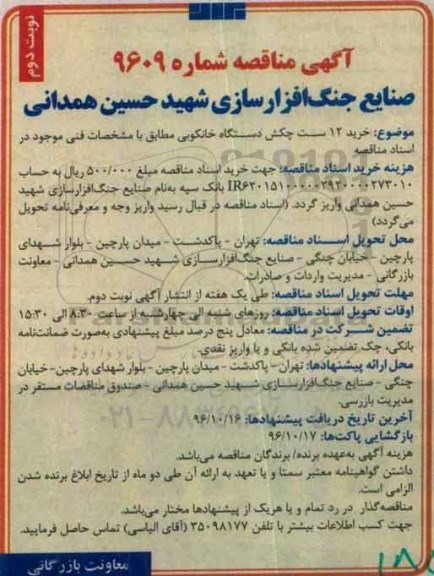 نوبت دوم
آگهی مناقصه شماره ۹۶۰۹
صنایع جنگ‌افزارسازی شهید حسین همدانی
موضوع: خرید ۱۲ ست چکش دستگاه خانکوبی مطابق با مشخصات فنی موجود در
اسناد مناقصه
هزینه خرید اسناد مناقصه: جهت خرید اسناد مناقصه مبلغ ۵۰۰/۰۰۰ ریال به حساب
بانک سپه به‌نام صنایع جنگ‌افزارسازی شهید
حسین همدانی واریز گردد. (اسناد مناقصه در قبال رسید واریز وجه و معرفی‌نامه تحویل
می‌گردد)
محل تحویل اسناد مناقصه: تهران - پاکدشت - میدان پارچین - بلوار شهدای
پارچین - خیابان چنگی - صنایع جنگ‌افزارسازی شهید حسین همدانی - معاونت
بازرگانی - مدیریت واردات و صادرات.
مهلت تحویل اسناد مناقصه: طی یک هفته از انتشار آگهی نوبت دوم.
اوقات تحویل اسناد مناقصه: روزهای شنبه الی چهارشنبه از ساعت ۸:۳۰ الی ۱۵:۳۰
تضمین شرکت در مناقصه: معادل پنج درصد مبلغ پیشنهادی به‌صورت ضمانت‌نامه
بانکی، چک تضمین شده بانکی و یا واریز نقدی.
محل ارائه پیشنهادها: تهران - پاکدشت - میدان پارچین - بلوار شهدای پارچین - خیابان
چنگی - صنایع جنگ‌افزارسازی شهید حسین همدانی - صندوق مناقصات مستقر در
مدیریت بازرسی.
آخرین تاریخ دریافت پیشنهادها: ۹۶/۱۰/۱۶
بازگشایی پاکت‌ها: ۹۶/۱۰/۱۷
هزینه آگهی به‌عهده برنده/برندگان مناقصه می‌باشد.
داشتن گواهینامه معتبر سمتا و یا تعهد به ارائه آن طی دو ماه از تاریخ ابلاغ برنده شدن
الزامی است.
مناقصه‌گذار در رد تمام و یا هریک از پیشنهادها مختار می‌باشد.
جهت کسب اطلاعات بیشتر با تلفن ۳۵۰۹۸۱۷۷ (آقای الیاسی) تماس حاصل فرمایید.
معاونت بازرگانی